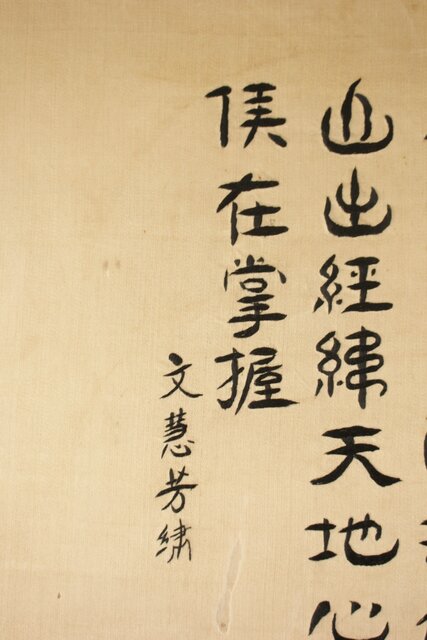 山出經緯天地心
侯在掌握
文慧芳繡